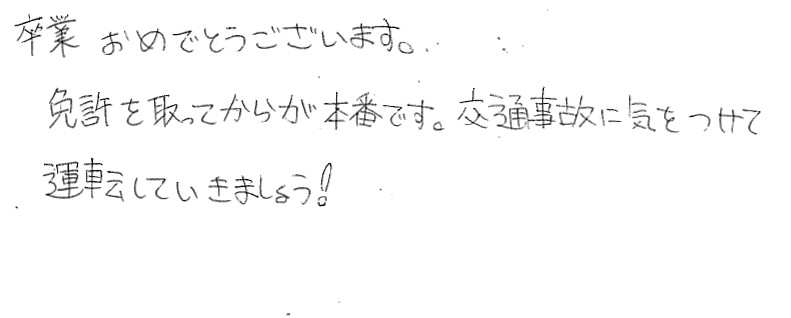 卒業 おめでとうございます。
免許を取ってからが本番です。交通事故に気をつけて
運転していきましょう!